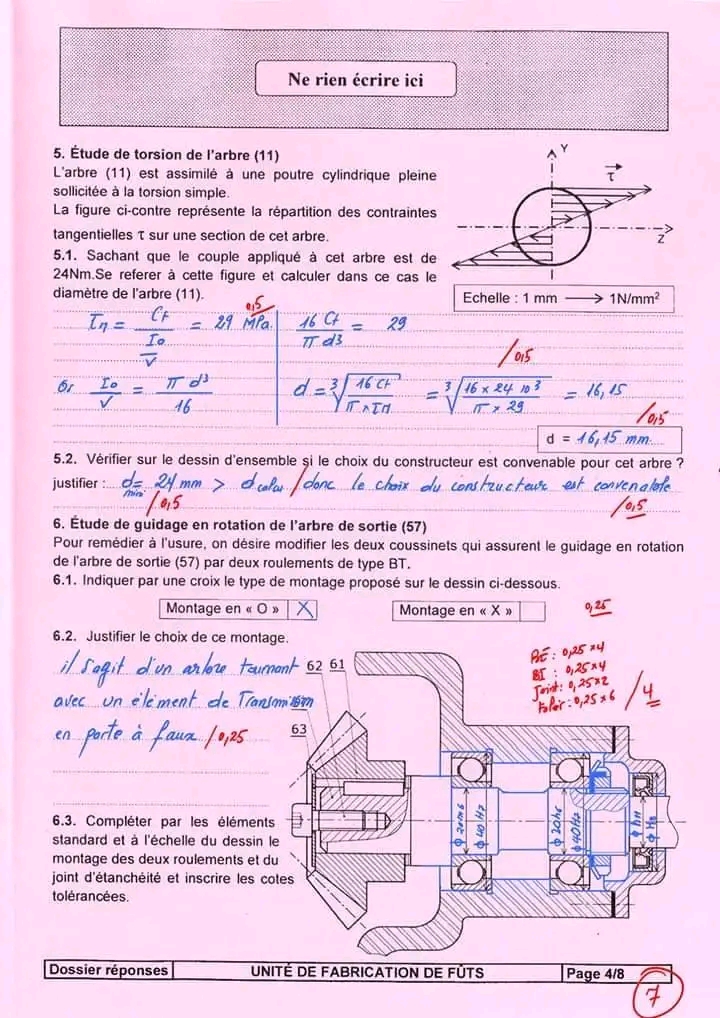 Ne rien écrire ici
5. Étude de torsion de l'arbre (11)
L'arbre (11) est assimilé à une poutre cylindrique pleine
sollicitée à la torsion simple.
La figure ci-contre représente la répartition des contraintes
tangentielles τ sur une section de cet arbre.
5.1. Sachant que le couple appliqué à cet arbre est de
24Nm.Se referer à cette figure et calculer dans ce cas le
diamètre de l'arbre (11).
Y
τ
Z
Echelle : 1 mm → 1N/mm²
τM = Ct / (Io/V) = 29 MPa. 0,5
16 Ct / π d3 = 29
/0,5
Or Io/V = π d3 / 16
d = 3√(16 Ct / π × τM) = 3√(16 × 24 10 3 / π × 29) = 16,15
/0,5
d = 16,15 mm
5.2. Vérifier sur le dessin d'ensemble si le choix du constructeur est convenable pour cet arbre ?
justifier : d mini = 24 mm > d calcu / donc le choix du constructeur est convenable
/0,5 /0,5
6. Étude de guidage en rotation de l'arbre de sortie (57)
Pour remédier à l'usure, on désire modifier les deux coussinets qui assurent le guidage en rotation
de l'arbre de sortie (57) par deux roulements de type BT.
6.1. Indiquer par une croix le type de montage proposé sur le dessin ci-dessous.
Montage en « O » X
Montage en « X »
0,25
6.2. Justifier le choix de ce montage.
il s'agit d'un arbre tournant
avec un élément de Transmission
en porte à faux /0,25
BE : 0,25×4
BI : 0,25×4
Joint : 0,25×2
0,25×6
/4
62 61
63
φ20m6
φ40H7
φ20h6
φ40H7
φ h11
φ H8
6.3. Compléter par les éléments
standard et à l'échelle du dessin le
montage des deux roulements et du
joint d'étanchéité et inscrire les cotes
tolérancées.
Dossier réponses
UNITÉ DE FABRICATION DE FÛTS
Page 4/8
7